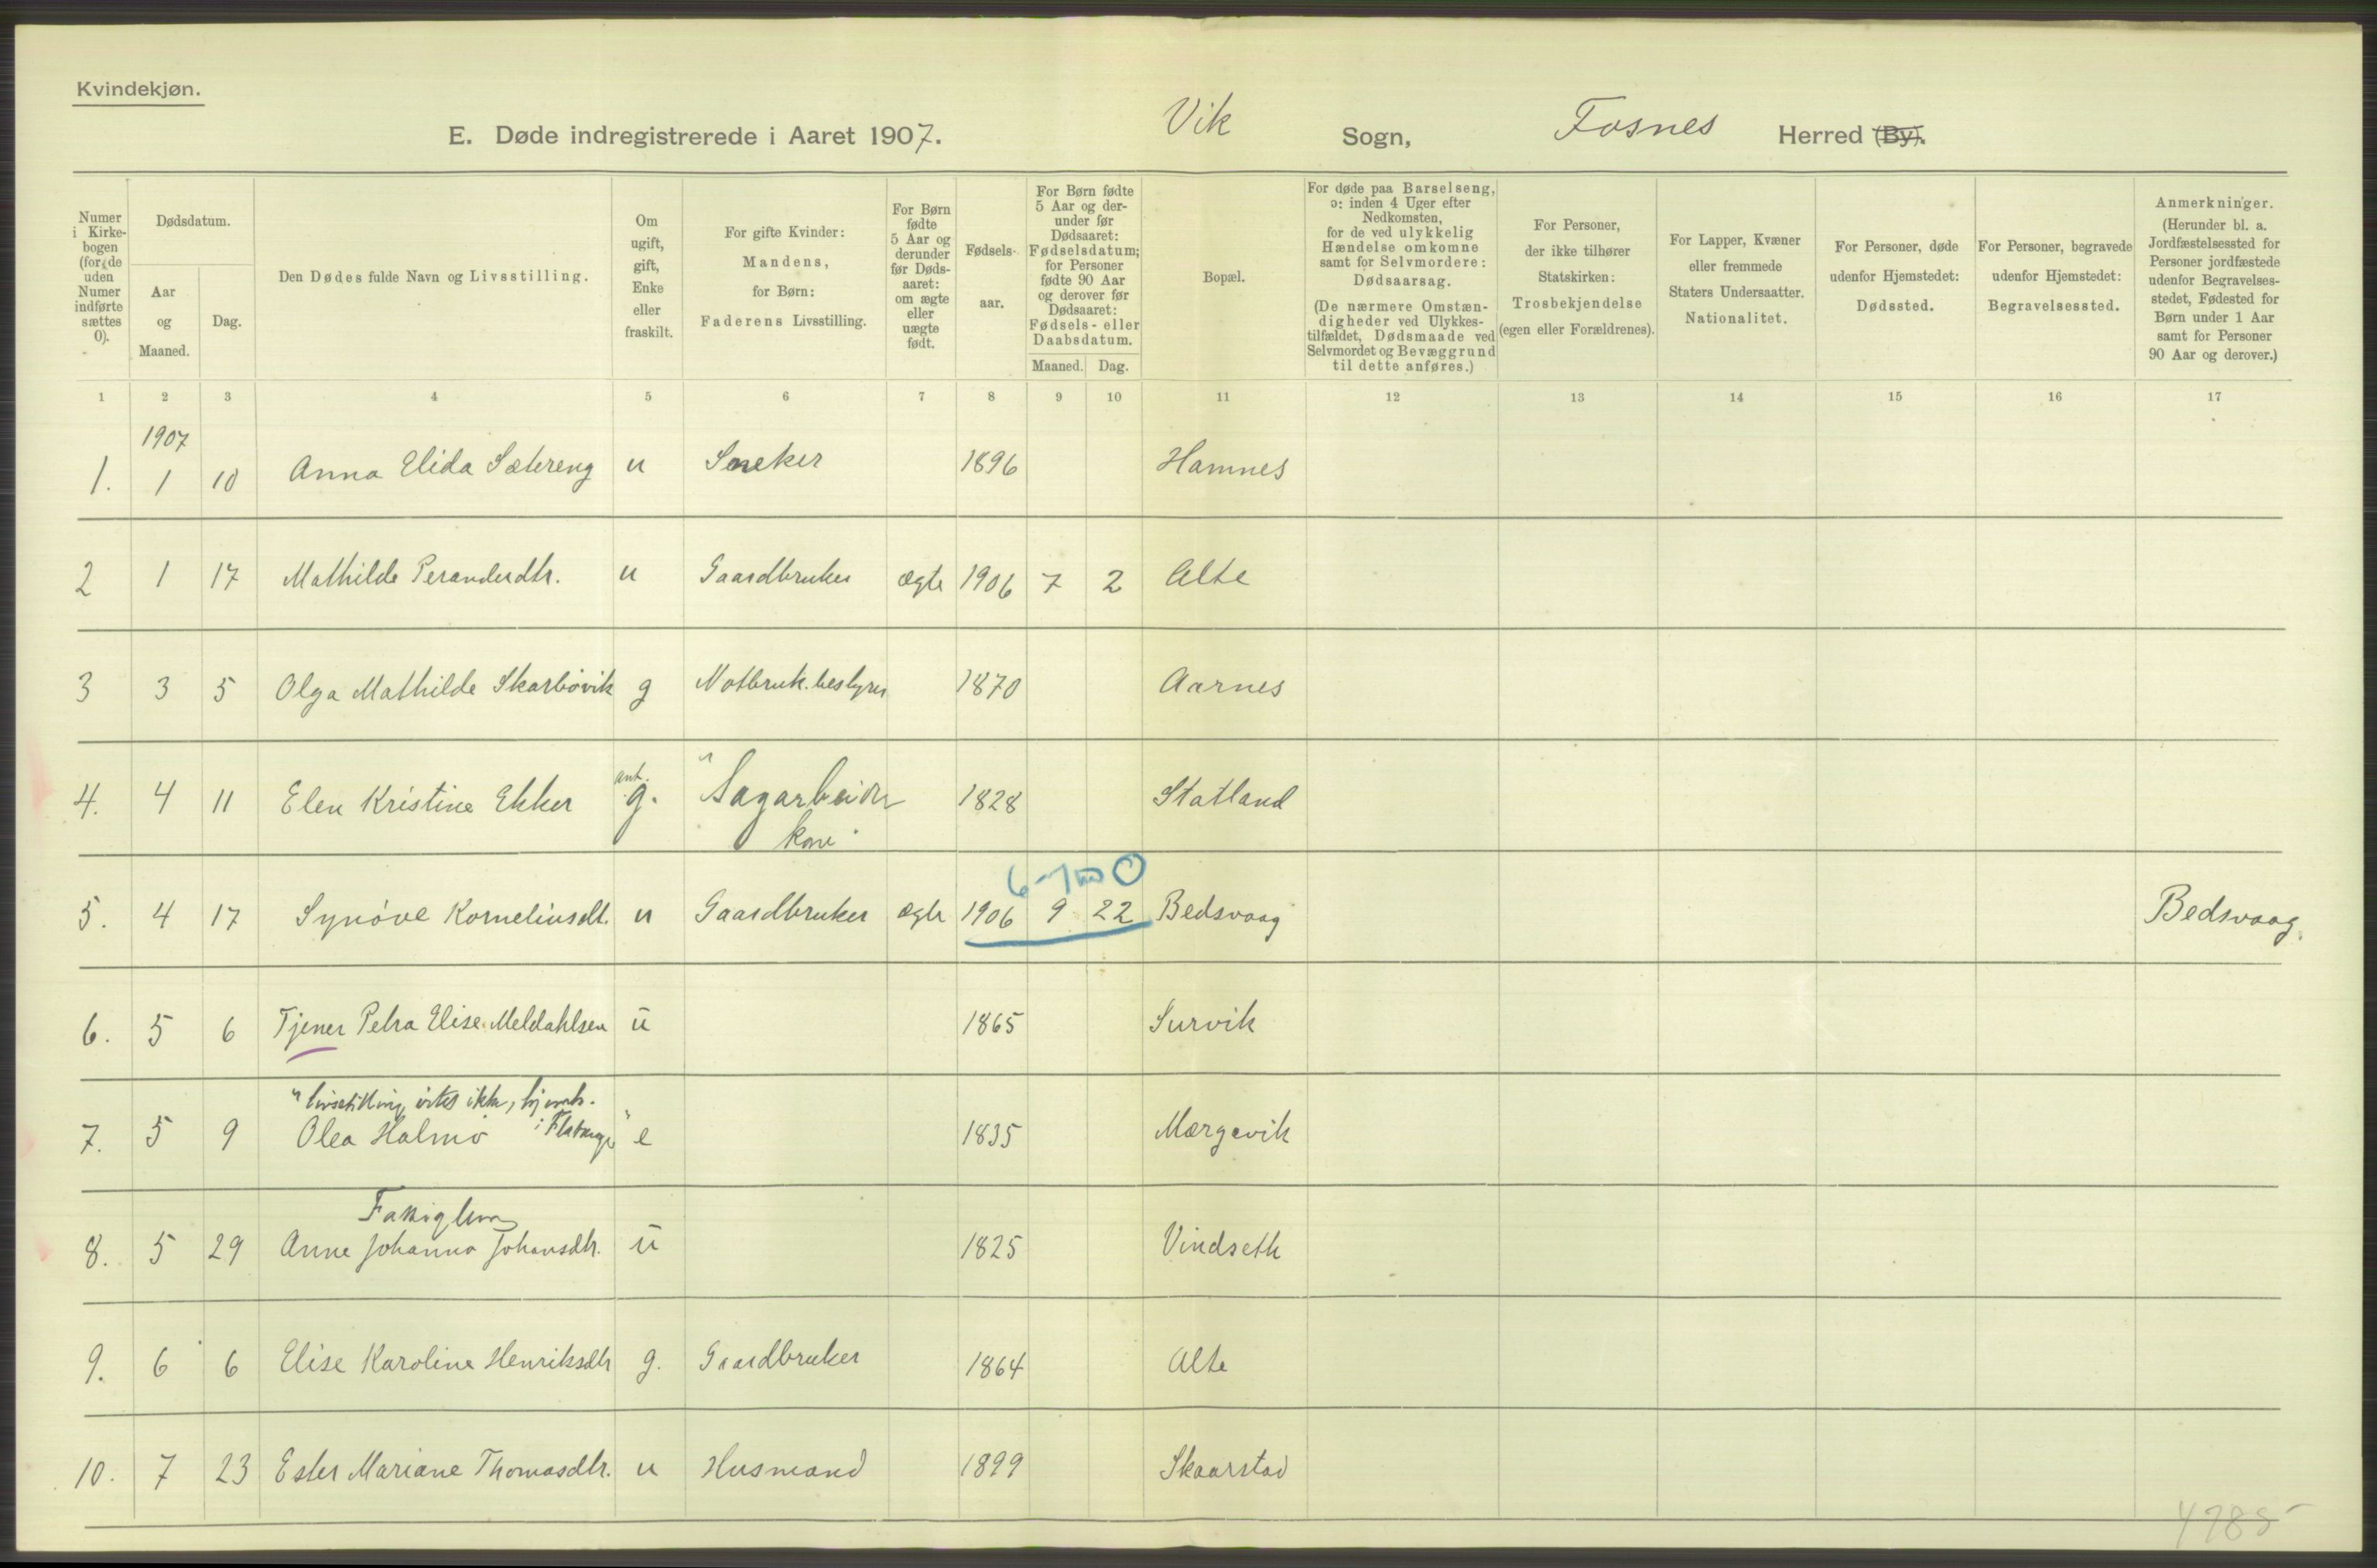 Kvindekjøn.
E. Døde indregistrerede i Aaret 1907. Vik Sogn, Fosnes Herred (By).
Numer i Kirkebogen (for de uden Numer indførte sættes 0).
Dødsdatum.
Aar og Maaned.
Dag.
Den Dødes fulde Navn og Livsstilling.
Om ugift, gift, Enke eller fraskilt.
For gifte Kvinder: Mandens, for Børn: Faderens Livsstilling.
For Børn fødte 5 Aar og derunder før Dødsaaret: om ægte eller uægte født.
Fødselsaar.
For Børn fødte 5 Aar og derunder før Dødsaaret: Fødselsdatum; for Personer fødte 90 Aar og derover før Dødsaaret: Fødsels- eller Daabsdatum.
Maaned. Dag.
Bopæl.
For døde paa Barselseng, ɔ: inden 4 Uger efter Nedkomsten, for de ved ulykkelig Hændelse omkomne samt for Selvmordere: Dødsaarsag.
(De nærmere Omstændigheder ved Ulykkestilfældet, Dødsmaade ved Selvmordet og Bevæggrund til dette anføres.)
For Personer, der ikke tilhører Statskirken: Trosbekjendelse (egen eller Forældrenes).
For Lapper, Kvæner eller fremmede Staters Undersaatter. Nationalitet.
For Personer, døde udenfor Hjemstedet: Dødssted.
For Personer, begravede udenfor Hjemstedet: Begravelsessted.
Anmerkninger. (Herunder bl. a. Jordfæstelsessted for Personer jordfæstede udenfor Begravelsesstedet, Fødested for Børn under 1 Aar samt for Personer 90 Aar og derover.)
1 2 3 4 5 6 7 8 9 10 11 12 13 14 15 16 17
1907
1. 1 10 Anna Elida Sætereng u Sneker 1896 Hamnes
2 1 17 Mathilde Peranderdtr. u Gaardbruker ægte 1906 7 2 Alte
3 3 5 Olga Mathilde Skarbövik g Notbruk.bestyrer 1870 Aarnes
ant.
4. 4 11 Elen Kristine Ekker g. "Sagarbeider 1828 Statland
kone"
5. 4 17 Synöve Korneliusdt. u Gaardbruker ægte 1906 9 22 Bedsvaag Bedsvaag.
6. 5 6 Tjener Petra Elise Meldahlsen u 1865 Survik
"livsstilling vites ikke, hjemh.
7. 5 9 Olea Halmö i Flatanger" e 1835 Mærgevik
Fattiglem
8. 5 29 Anne Johanna Johansdtr. u 1825 Vindseth
9. 6 6 Elise Karoline Henriksdtr g. Gaardbruker 1864 Alte
10. 7 23 Ester Mariane Thomasdtr. u Husmand 1899 Skaarstad